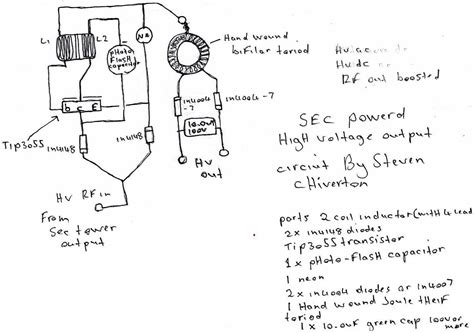 L1
L2
N2
Hand wound
bifilar toriod
Hv dc
RF out boosted
pHoto
FlasH
capacitor
b c E
Tip3055
1N4148
1N4148
1N4004-7
1N4004-7
10.0uf
100v
HV
out
HV RF in
From
Sec tower
output
SEC powerd
High voltage output
circiut By Steven
cHiverton
parts 2 coil inductor(witH 4 lead
2x 1N4148 diodes
Tip3055 transistor
1x pHoto-FlasH capacitor
1 neon
2x 1N4004 diodes or 1N4007
1 Hand wound Joule tHeif
toriod
1x 10.0uf green cap 100v or
more